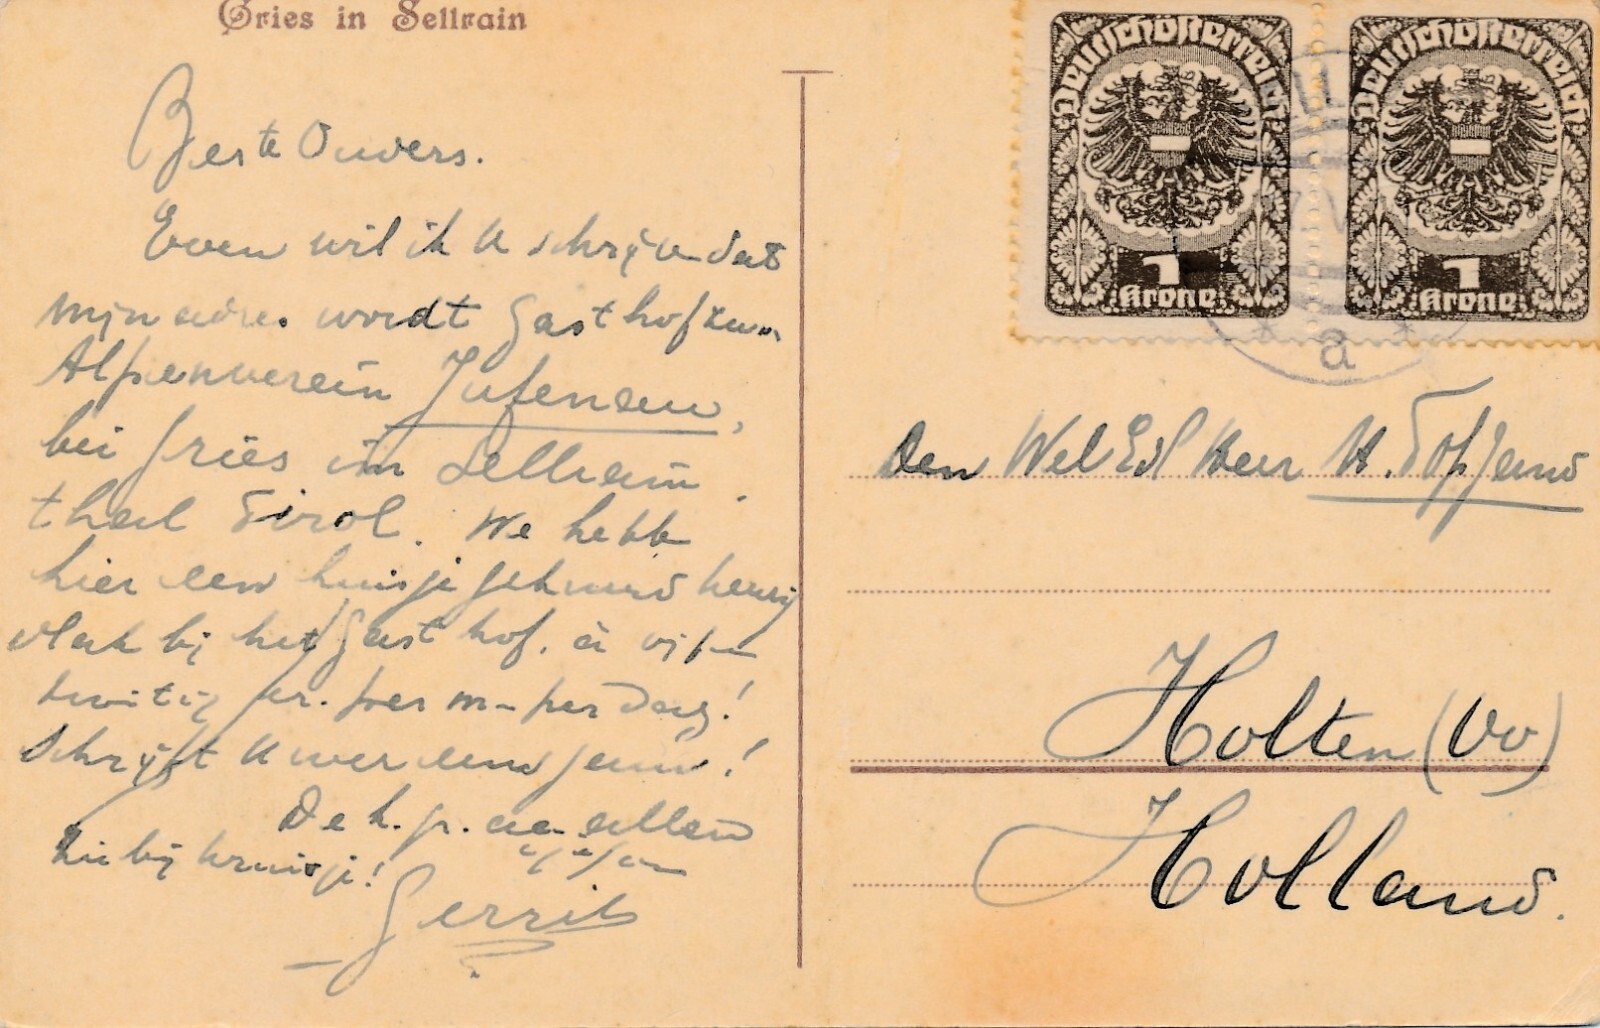 Gries in Sellrain
Beste Ouders.
Even wil ik U schrijven dat
mijn adres wordt Gasthof zum
Alpenverein Jufenau,
bei Gries im Sellrain.
thal Tirol. We hebben
hier een huisje gehuurd
vlak bij het Gasthof. à vijfen
twintig kr. per m per dag!
Schrijft U weer eens
De h. gr. aan allen
Zie bij kruisje!
Gerrit
Deutschösterreich
1
Krone
Deutschösterreich
1
Krone
a
Den Wel Ed Heer
Holten (Ov)
Holland.